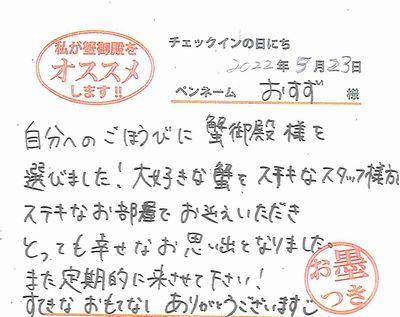 私が蟹御殿を
オススメ
します!!
チェックインの日にち
2022年5月23日
ペンネーム おすず 様
自分へのごほうびに 蟹御殿様を
選びました!大好きな蟹をステキなスタッフ様方と
ステキなお部屋でお迎えいただき
とっても幸せなお思い出となりました。
また定期的に来させて下さい!
すてきな おもてなし ありがとうございます
お墨
つき